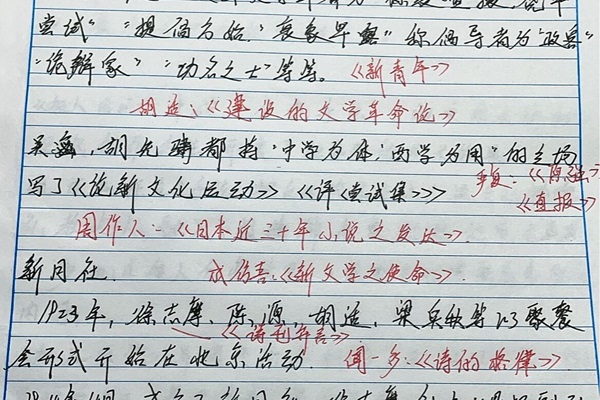 尝试" "提倡方始,衰象毕露" 称倡导者为"政客"
"诡辩家" "功名之士"等等。《新青年》
胡适:《建设的文学革命论》
吴宓,胡先骕都持"中学为体,西学为用"的立场
写了《论新文化运动》《评〈尝试集〉》
严复:《原强》
《直报》
周作人-《日本近三十年小说之发达》
新月社 成仿吾:《新文学之使命》
1923年,徐志摩,陈源,胡适,梁实秋等以聚餐
《诗刊弁言》
会形式开始在北京活动. 闻一多:《诗的格律》